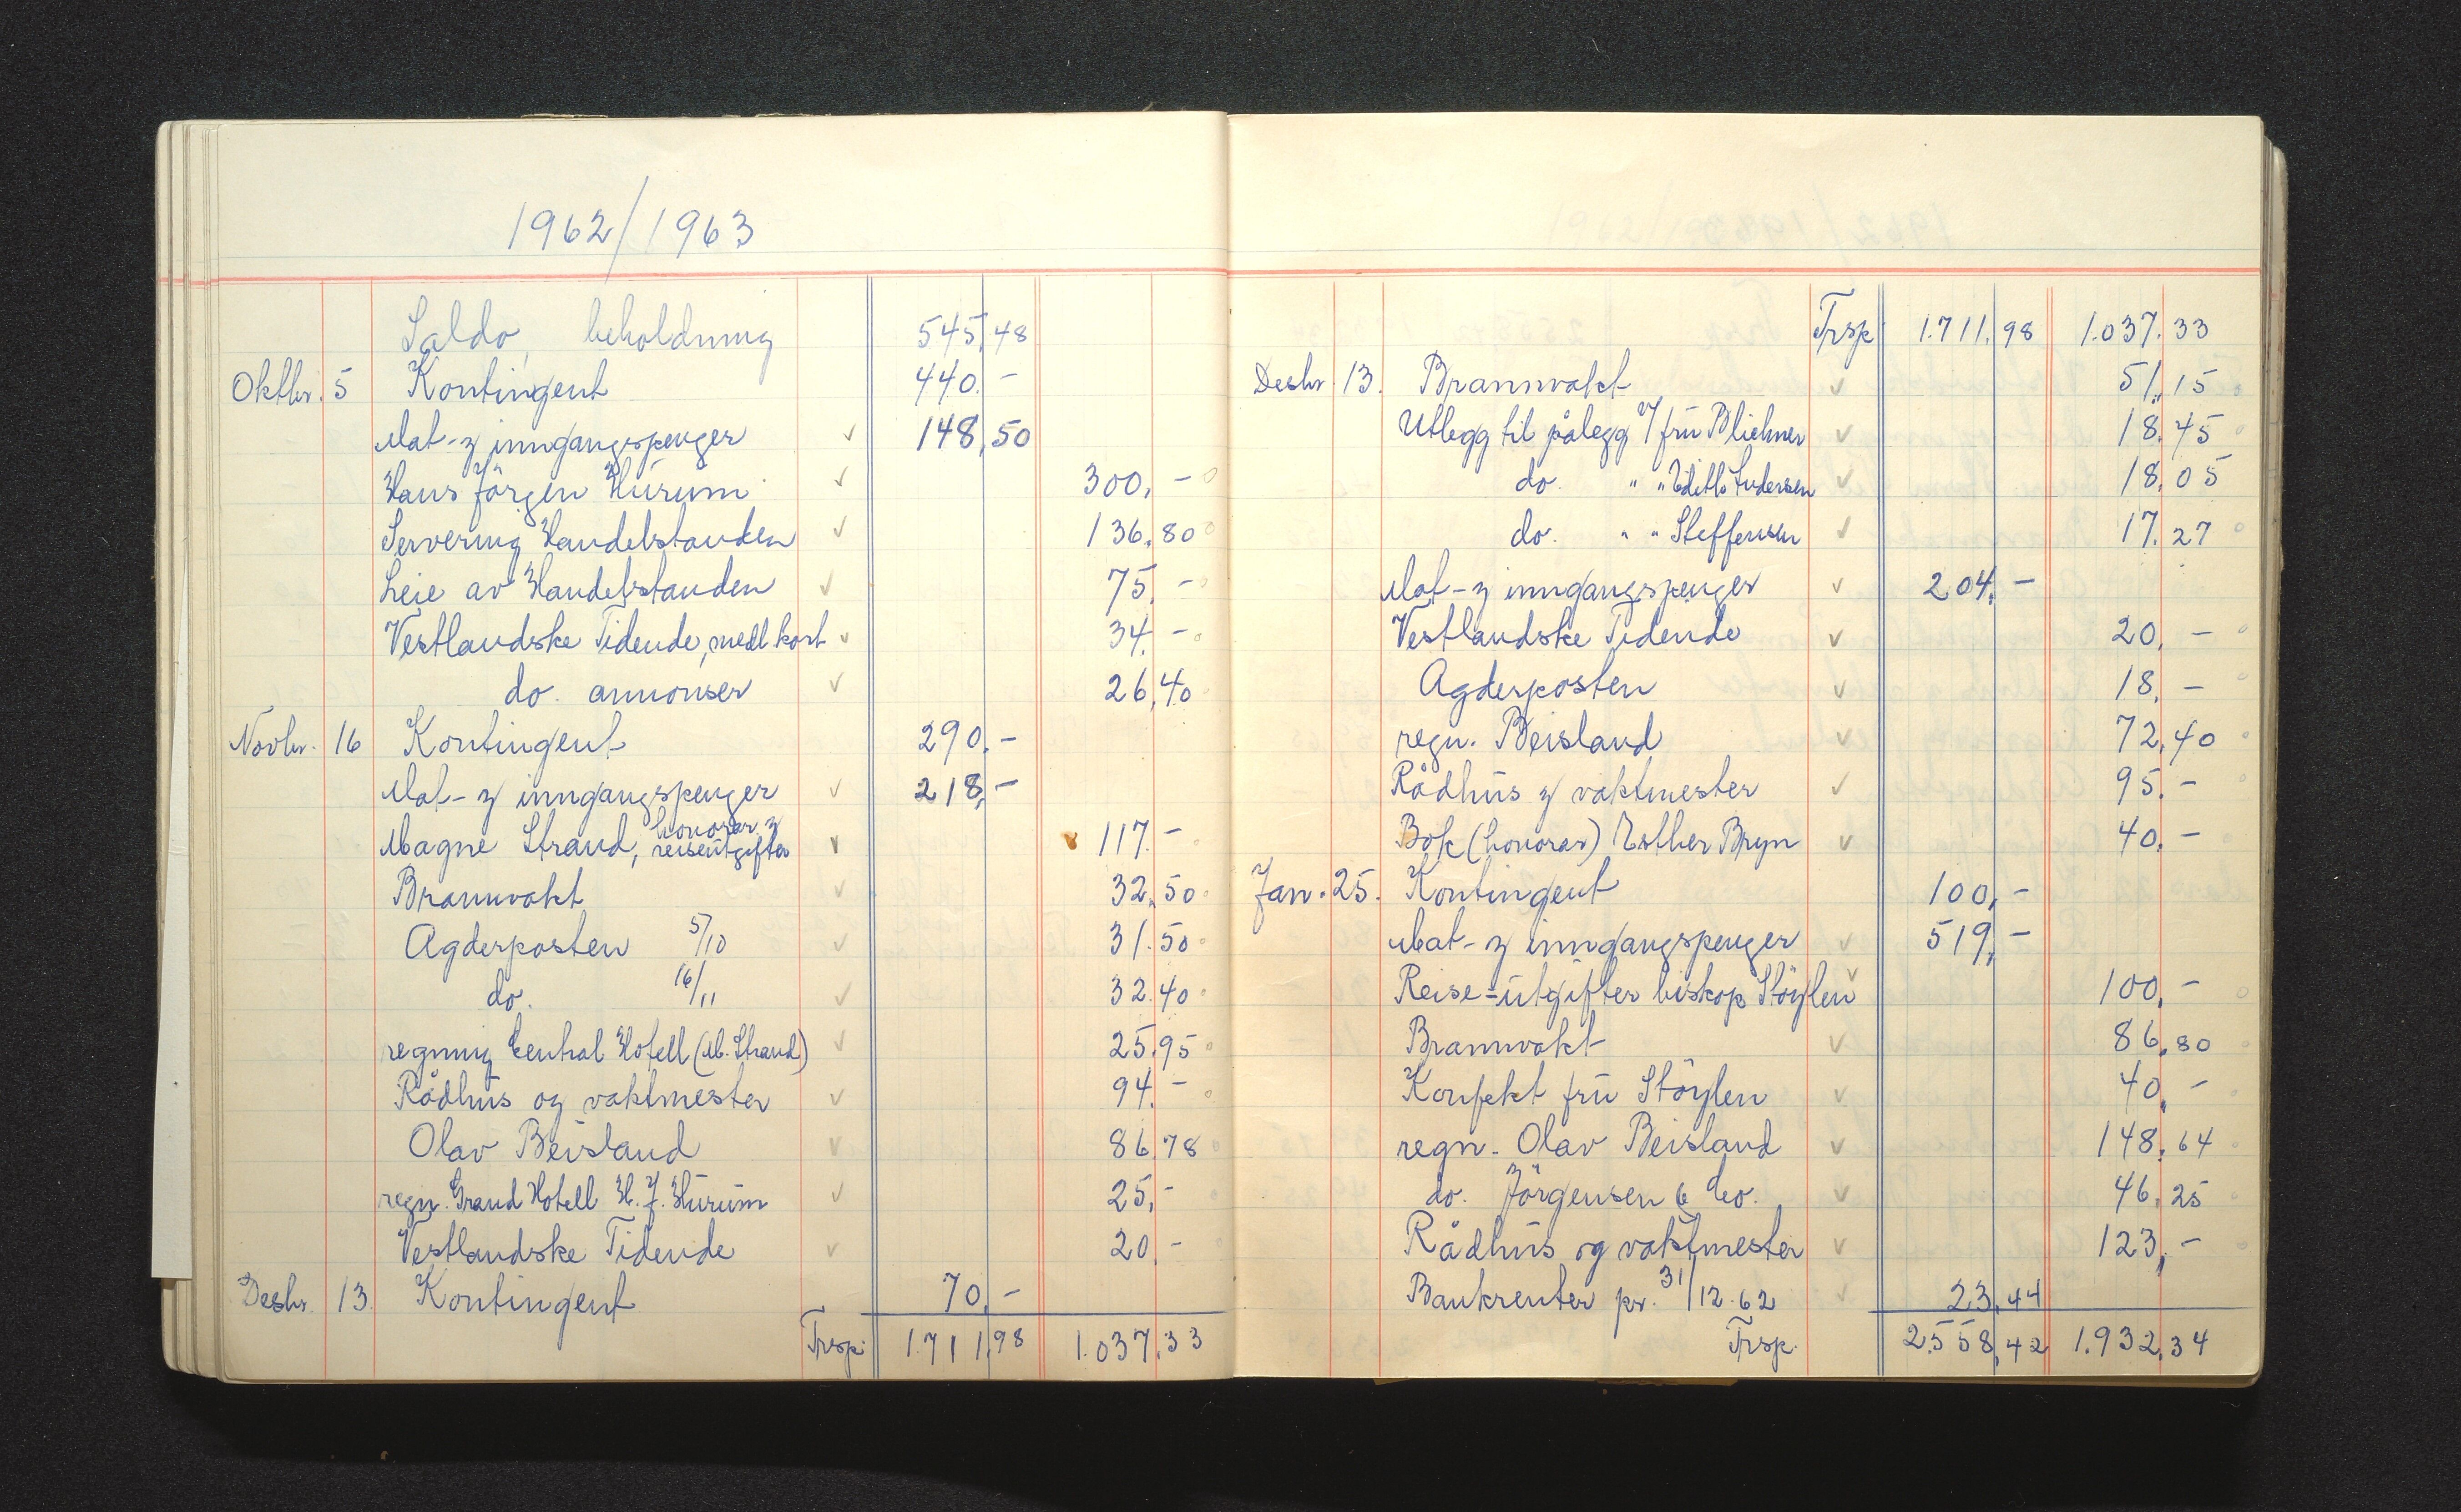 1962/1963
Saldo, beholdning 545,48
Oktbr. 5 Kontingent 440.-
Mat- og inngangspenger ✓ 148,50
Hans Jörgen Hurum ✓ 300,-
Servering Handelstanden ✓ 136,80
Leie av Handelstanden ✓ 75,-
Vestlandske Tidende, medl kort ✓ 34.-
do. annonser ✓ 26,40
Novbr. 16 Kontingent 290,-
Mat- og inngangspenger ✓ 218,-
Magne Strand, honorar og reiseutgifter ✓ 117.-
Brannvakt ✓ 32,50
Agderposten 5/10 ✓ 31.50
do. 16/11 ✓ 32.40
regning Central Hotell (M. Strand) ✓ 25.95
Rådhus og vaktmester ✓ 94.-
Olav Beisland ✓ 86,78
regn. Grand Hotell H. J. Hurum ✓ 25,-
Vestlandske Tidende ✓ 20,-
Desbr. 13 Kontingent 70,-
Trsp. 1.711,98 1.037,33
Trsp. 1.711,98 1.037,33
Desbr. 13. Brannvakt ✓ 51,15
Utlegg til pålegg v/ fru Blichner ✓ 18.45
do. " " Edith Andersen ✓ 18,05
do. " " Steffensen ✓ 17.27
Mat- og inngangspenger ✓ 204,-
Vestlandske Tidende ✓ 20,-
Agderposten ✓ 18,-
regn. Beisland ✓ 72,40
Rådhus og vaktmester ✓ 95.-
Bok (honorar) Esther Bryn ✓ 40,-
Jan. 25. Kontingent 100,-
Mat- og inngangspenger ✓ 519,-
Reise-utgifter biskop Stöylen ✓ 100,-
Brannvakt ✓ 86,80
Konfekt fru Stöylen ✓ 40,-
regn. Olav Beisland ✓ 148,64
do. Jörgensen & Co. ✓ 46,25
Rådhus og vaktmester ✓ 123,-
Bankrenter pr. 31/12.62 ✓ 23,44
Trsp. 2.558,42 1.932,34